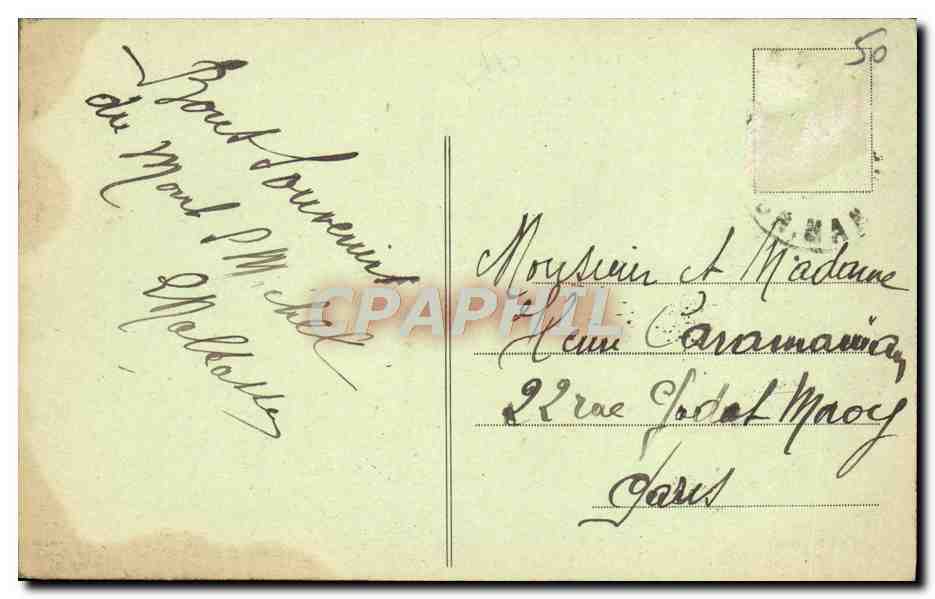 Bont Souvenirt
du Mont S Michel
50
Monsieur et Madame
Henri Caramanian
22 rue Godot Mauroy
Paris
CPAPHIL